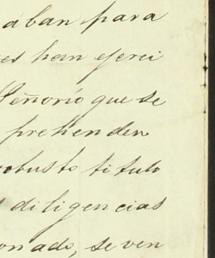 aban para
es han ejerci
Señorío que se
prehenden
robusto titulo
diligencias
onado, se ven